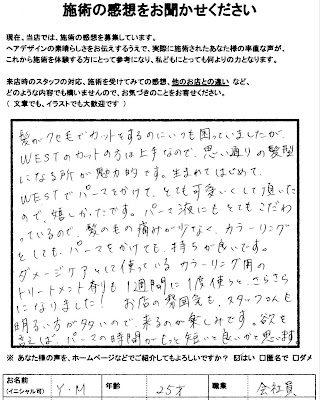 施術の感想をお聞かせください
現在、当店では、施術の感想を募集しています。
ヘアデザインの素晴らしさをお伝えするうえで、実際に施術されたあなた様の率直な声が、
これから施術を体験する方にとって参考になり、私どもにとっても何よりの力となります。
来店時のスタッフの対応、施術を受けてみての感想、他のお店との違い など、
どのような内容でも構いませんので、お気づきのことをお寄せください。
( 文章でも、イラストでも大歓迎です )
髪がクセ毛でカットをするのにいつも困っていましたが、
WESTのカットの方は上手なので、思い通りの髪型
になる所が魅力的です。生まれてはじめて、
WESTでパーマをかけて、とても可愛いくして頂いた
ので、嬉しかったです。パーマ液にもとてもこだわ
っているので、髪のもの痛みが少なく、カラーリング
としても、パーマをかけても、持ちが良いです。
ダメージケアとして使っているカラーリング用の
トリートメント剤も1週間に1度使うと、さらさら
になりました! お店の雰囲気も、スタッフさんも
明るい方が多いので、来るのが楽しみです。欲を
言えば、パーマの時間がもっと短いと良いかと思います
※ あなた様の声を、ホームページなどでご紹介してもよろしいですか? ☑はい □匿名で □ダメ
お名前
(イニシャル可) Y・M 年齢 25才 職業 会社員